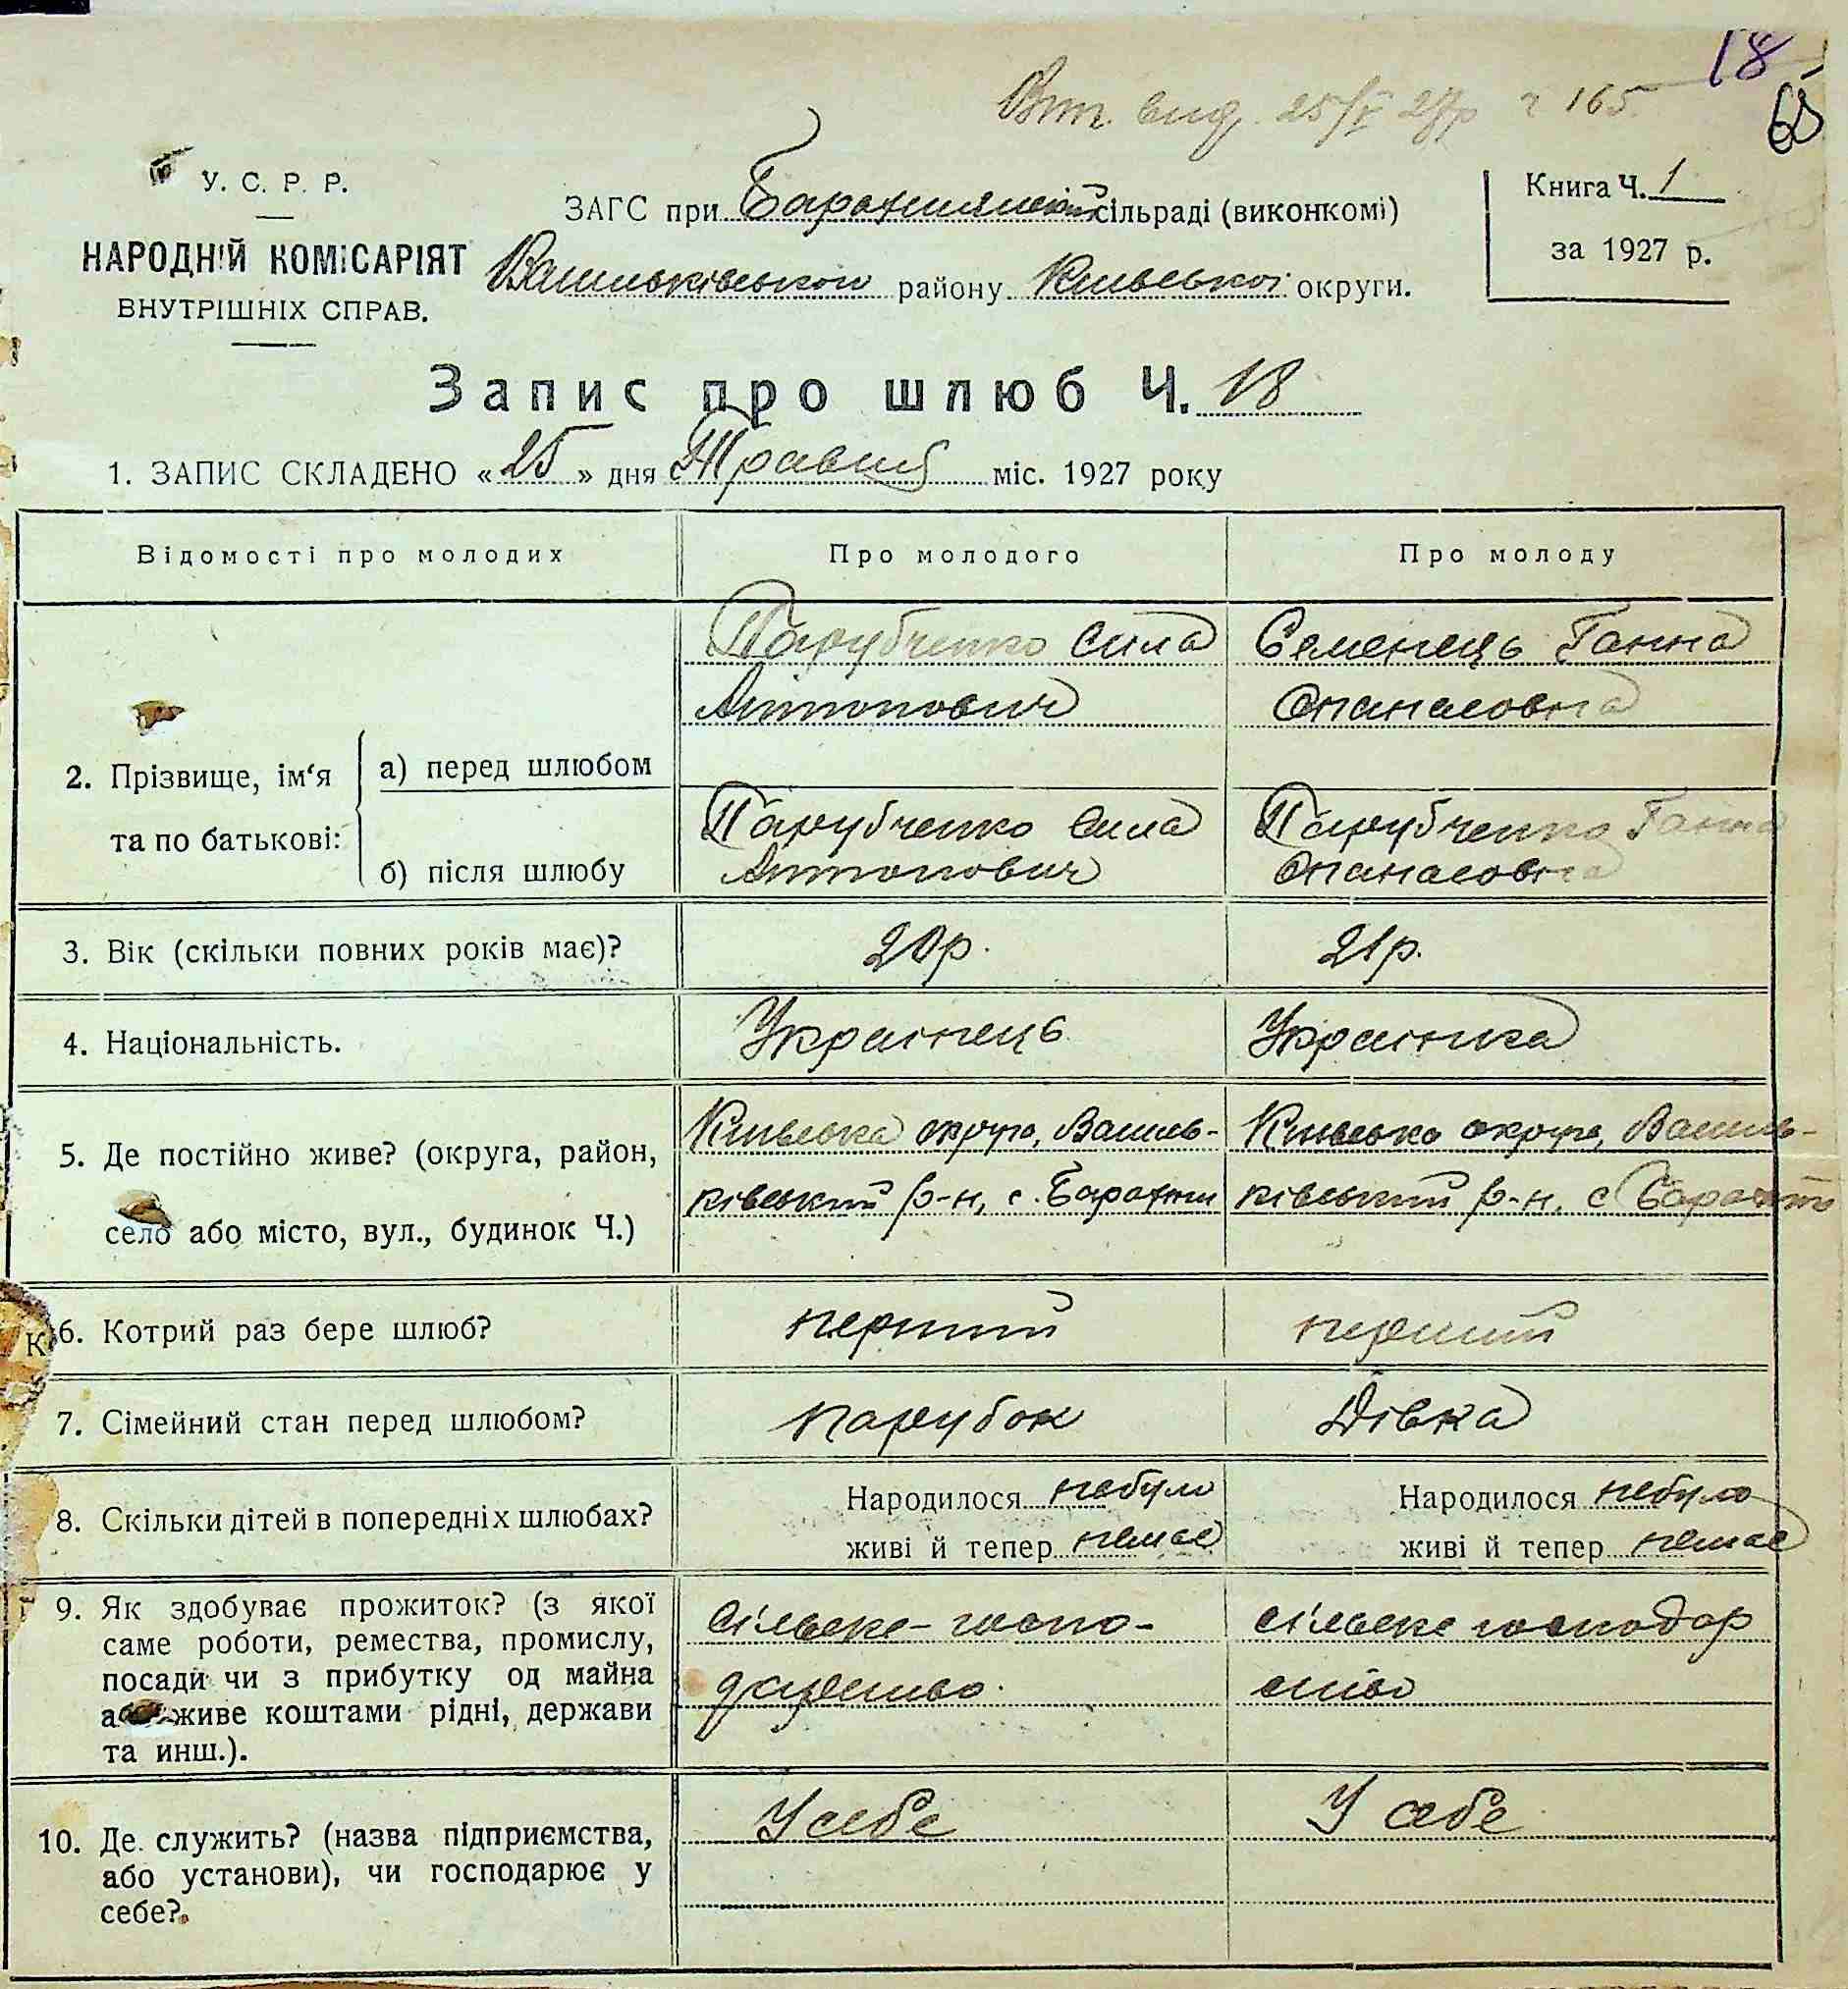 18
65
Вит. вид. 25/V 27р ч 165
У. С. Р. Р.
НАРОДНІЙ КОМІСАРІЯТ
ВНУТРІШНІХ СПРАВ.
ЗАГС при Барахтянській сільраді (виконкомі)
Васильківського району Київської округи.
Книга Ч. 1
за 1927 р.
Запис про шлюб Ч. 18
1. ЗАПИС СКЛАДЕНО «25» дня Травня міс. 1927 року
Відомості про молодих
Про молодого
Про молоду
2. Прізвище, ім‘я
та по батькові:
а) перед шлюбом
Парубченко Сила
Антонович
Семенець Ганна
Опанасовна
б) після шлюбу
Парубченко Сила
Антонович
Парубченко Ганна
Опанасовна
3. Вік (скільки повних років має)?
20р.
21р.
4. Національність.
Украінець
Украінка
5. Де постійно живе? (округа, район,
село або місто, вул., будинок Ч.)
Київська округа, Василь-
ківський р-н, с. Барахти
Київська округа, Василь-
ківський р-н, с Барахти
6. Котрий раз бере шлюб?
перший
перший
7. Сімейний стан перед шлюбом?
парубок
Дівка
8. Скільки дітей в попередніх шлюбах?
Народилося небуло
живі й тепер немає
Народилося небуло
живі й тепер немає
9. Як здобуває прожиток? (з якої
саме роботи, ремества, промислу,
посади чи з прибутку од майна
або живе коштами рідні, держави
та инш.).
сільске-госпо-
дарство.
сільске господар
ство
10. Де служить? (назва підприємства,
або установи), чи господарює у
себе?
У себе
У себе